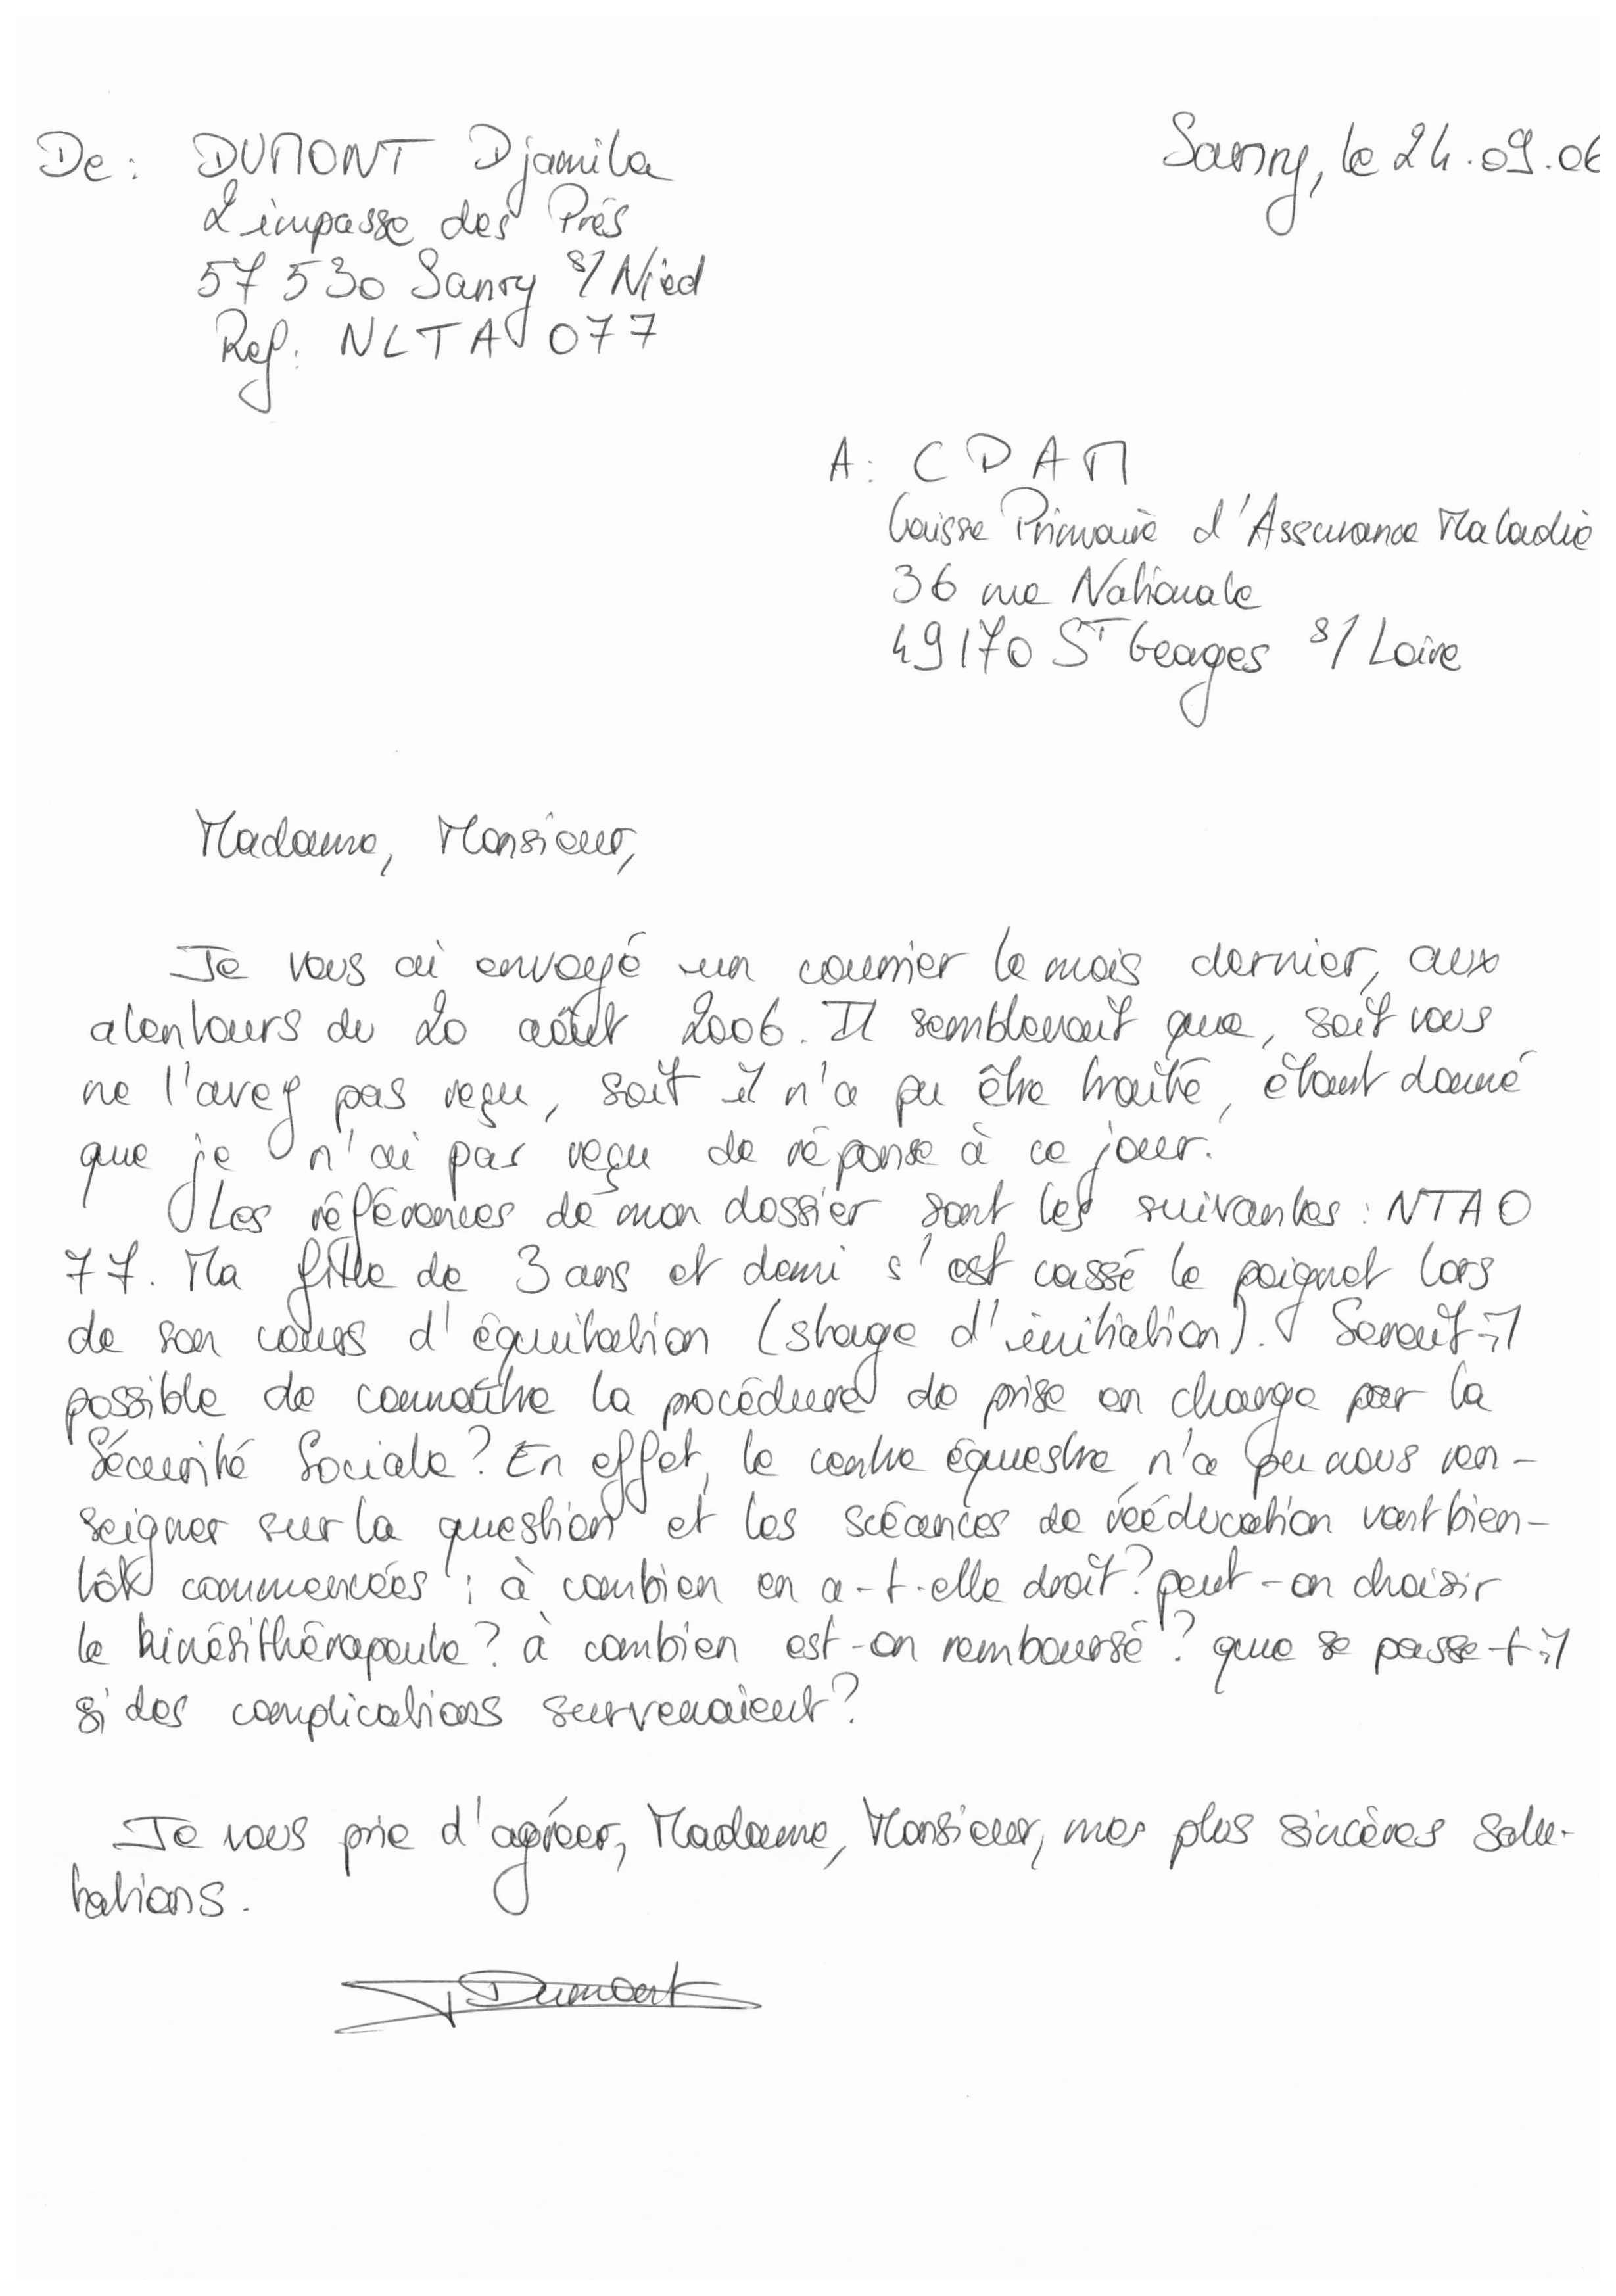 De : DUMONT Djamila
Sanry, le 24.09.06
2 impasse des Prés
57 530 Sanry s/ Nied
Ref : NLTA 077
A : CPAM
Caisse Primaire d'Assurance Maladie
36 rue Nationale
49170 ST Georges s/ Loire
Madame, Monsieur,
Je vous ai envoyé un courrier le mois dernier, aux
alentours du 20 août 2006. Il semblerait que, soit vous
ne l'avez pas reçu, soit il n'a pu être traité, étant donné
que je n'ai pas reçu de réponse à ce jour.
Les références de mon dossier sont les suivantes : NTAO
77. Ma fille de 3 ans et demi s'est cassé le poignet lors
de son cours d'équitation (stage d'initiation). Serait-il
possible de connaître la procédure de prise en charge par la
Sécurité Sociale ? En effet, le centre équestre n'a pu nous ren-
seigner sur la question et les scéances de rééducation vont bien-
tôt commencées ; à combien en a-t-elle droit ? peut-on choisir
le kinésithérapeute ? à combien est-on remboursé ? que se passe-t-il
si des complications survenaient ?
Je vous prie d'agréer, Madame, Monsieur, mes plus sincères salu-
tations.
Dumont